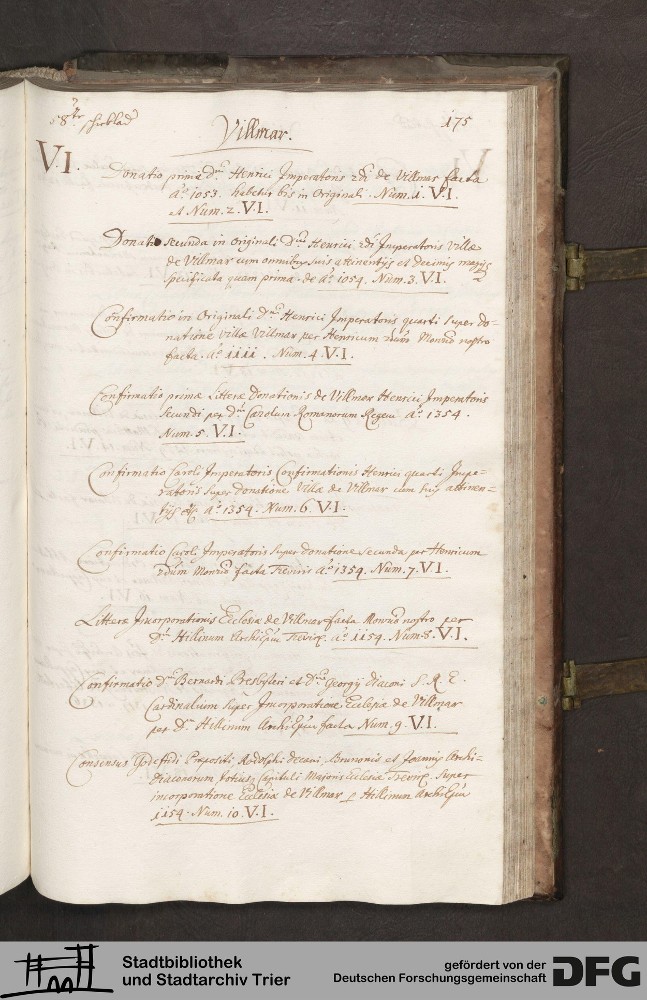 58
Villmar.
175
V.I.
Donatio prima d. Henrici Imperatoris 2di de Villmar facta
aº 1053. habetur bis in Originali. Num. 1. V.I.
et Num. 2. V.I.
Donatio secunda in Originali D. Henrici 2di Imperatoris Villæ
de Villmar cum omnibus suis attinentijs et decimis magis
specificata quam prima. de aº 1054. Num. 3. V.I.
Confirmatio in Originali d. Henrici Imperatoris quarti super do=
natione villæ Villmar per Henricum nostro
facta. aº 1111. Num. 4. V.I.
Confirmatio primæ Litteræ Donationis de Villmar Henrici Imperatoris
secundi per d. Carolum Romanorum Regem aº 1354.
Num. 5. V.I.
Confirmatio Caroli Imperatoris Confirmationis Henrici quarti Impe=
ratoris super donatione Villæ de Villmar cum suis attinen=
tijs aº 1354. Num. 6. V.I.
Confirmatio Caroli Imperatoris super donatione secunda per Henricum
2dum facta Treviris aº 1354. Num. 7. V.I.
Litteræ Incorporationis Ecclesiæ de Villmar facta nostro per
D. Hillinum aº 1154. Num. 8. V.I.
Confirmatio D. Bernardi Presbyteri et D. Georgij Diaconi S.R.E.
Cardinalium super Incorporatione Ecclesiæ de Villmar
per D. Hillinum facta Num. 9. V.I.
Consensus Godefridi Præpositi, Rodolphi decani, Brunonis et Joannis Archi=
diaconorum totius Capituli Majoris Ecclesiæ super
incorporatione Ecclesiæ de Villmar Hillinum
1154. Num. 10. V.I.
Stadtbibliothek
und Stadtarchiv Trier
gefördert von der
Deutschen Forschungsgemeinschaft
DFG